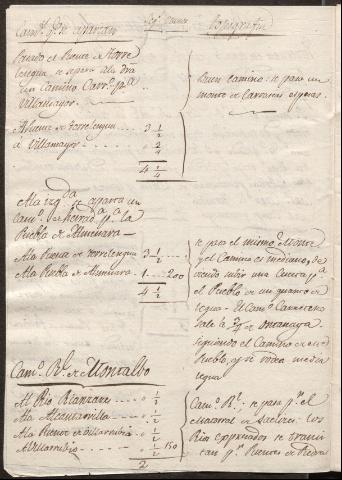 Cam.s q.e se apartan
Topografia
Pasado el Puente de Torre
lengua se separa a la dra
un camino Carr.o p.a
Villamayor
Buen Camino: se pasa un
monte de Carrascas espesas.
Al Puente de Torrelengua 3 1/2
a Villamayor 0 3/4
4 1/4
A la izq.da se aparta un
Cam.o de herrad.a p.a la
Puebla de Almenara
A la Puente de Torrelengua 3 1/2
A la Puebla de Almenara 1 200
4 1/2
se pasa el mismo Monte
y el Camino es mediano, de
viendo subir una Cuesta p.a
el Pueblo de un quarto de
legua. El Cam.o Carretero
vale la de
siguiendo el Camino de otro
Pueblo, q.e se rodea media
legua
Cam.o R.l de Montalbo
Al Rio Rianzares 0 1/2
A la Alcantarilla 0 1/2
A la Puente de Villarrubio 0 1/2
A Villarrubio 0 1/2 150
2
Cam.o R.l; se pasa p.r el
de Saelices: los
Rios expresados se transi
tan p.r Puentes de Piedra